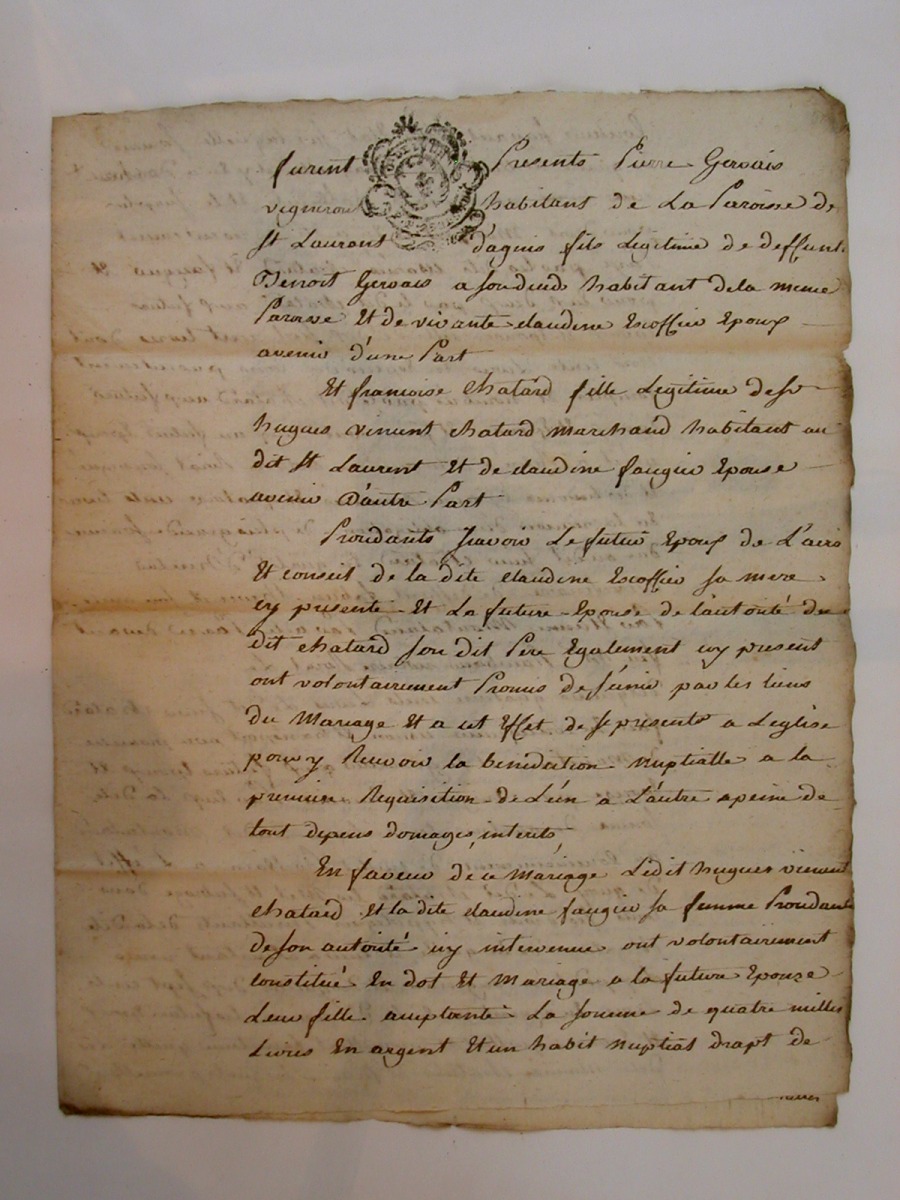 furent Presents Pierre Gervais
vigneron habitant de La Paroisse de
St Laurent d'aguis fils Legitime de deffunt
Benoit Gervais a son deceds habitant de la meme
Paroisse Et de vivante claudine Escoffier Epoux
avenir d'une Part
Et francoise chatard fille Legitime de Sr
hugues vincent chatard marchand habitant au
dit St Laurent Et de claudine faugier Epouse
avenir D'autre Part
Procédants scavoir Le futur Epoux de L'avis
Et conseil de la dite claudine Escoffier sa mere
icy presente Et La future Epouse de l'autorité du
dit chatard son dit Pere Egalement icy present
ont volontairement Promis de s'unir par les liens
du Mariage Et a cet Effet de se presenter a L'eglise
pour y Recevoir la benediction nuptialle a la
premiere Requisition de L'un a L'autre a peine de
tout depens domages, interets,
En faveur de ce Mariage Ledit hugues vincent
chatard et la dite claudine faugier sa femme Procedante
de son autorité icy intervenue ont volontairement
constitué En dot Et Mariage a la future Epouse
Leur fille acceptante La somme de quatre milles
Livres En argent Et un habit nuptial drapt de